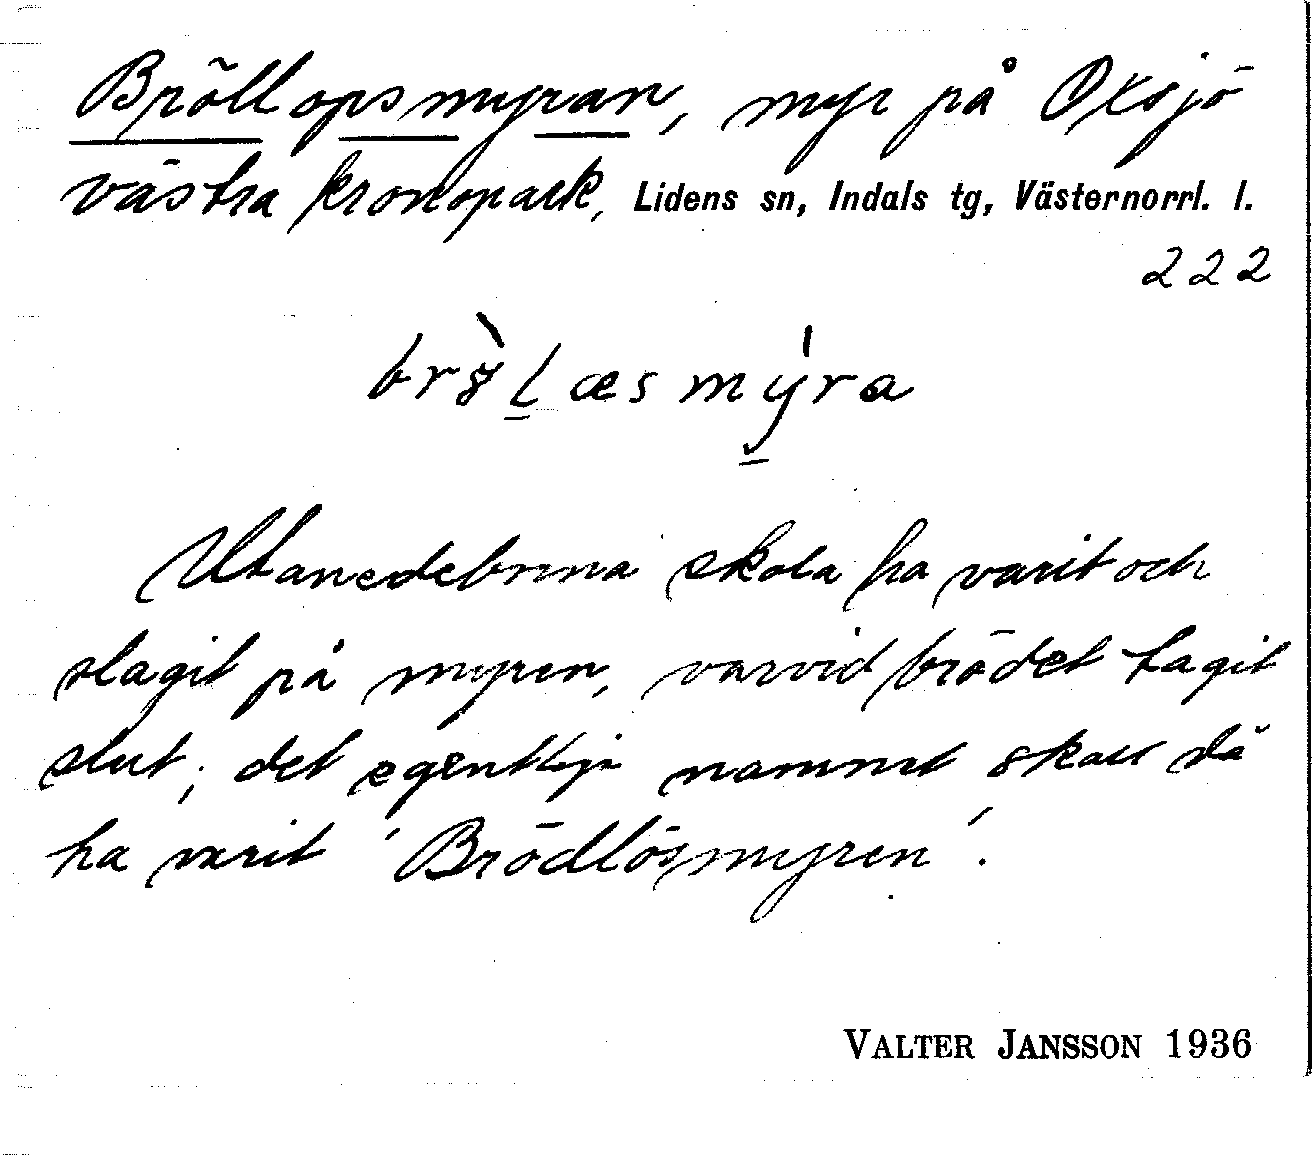 Bröllopsmyran, myr på Oxsjö
västra kronopark, Lidens sn, Indals tg, Västernorrl. l.
222
brø̀l̲æsmýra
Utanedeborna skola ha varit och
slagit på myren, varvid brödet tagit
slut; det egentliga namnet skall då
ha varit 'Brödlösmyren'.
VALTER JANSSON 1936